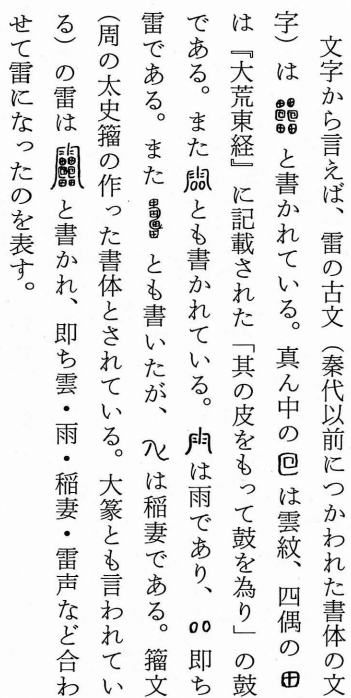 文字から言えば、雷の古文(秦代以前につかわれた書体の文
字)は と書かれている。真ん中の は雲紋、四偶の
は『大荒東経』に記載された「其の皮をもって鼓を為り」の鼓
である。また とも書かれている。 は雨であり、 即ち
雷である。また とも書いたが、 は稲妻である。籀文
(周の太史籀の作った書体とされている。大篆とも言われてい
る)の雷は と書かれ、即ち雲・雨・稲妻・雷声など合わ
せて雷になったのを表す。